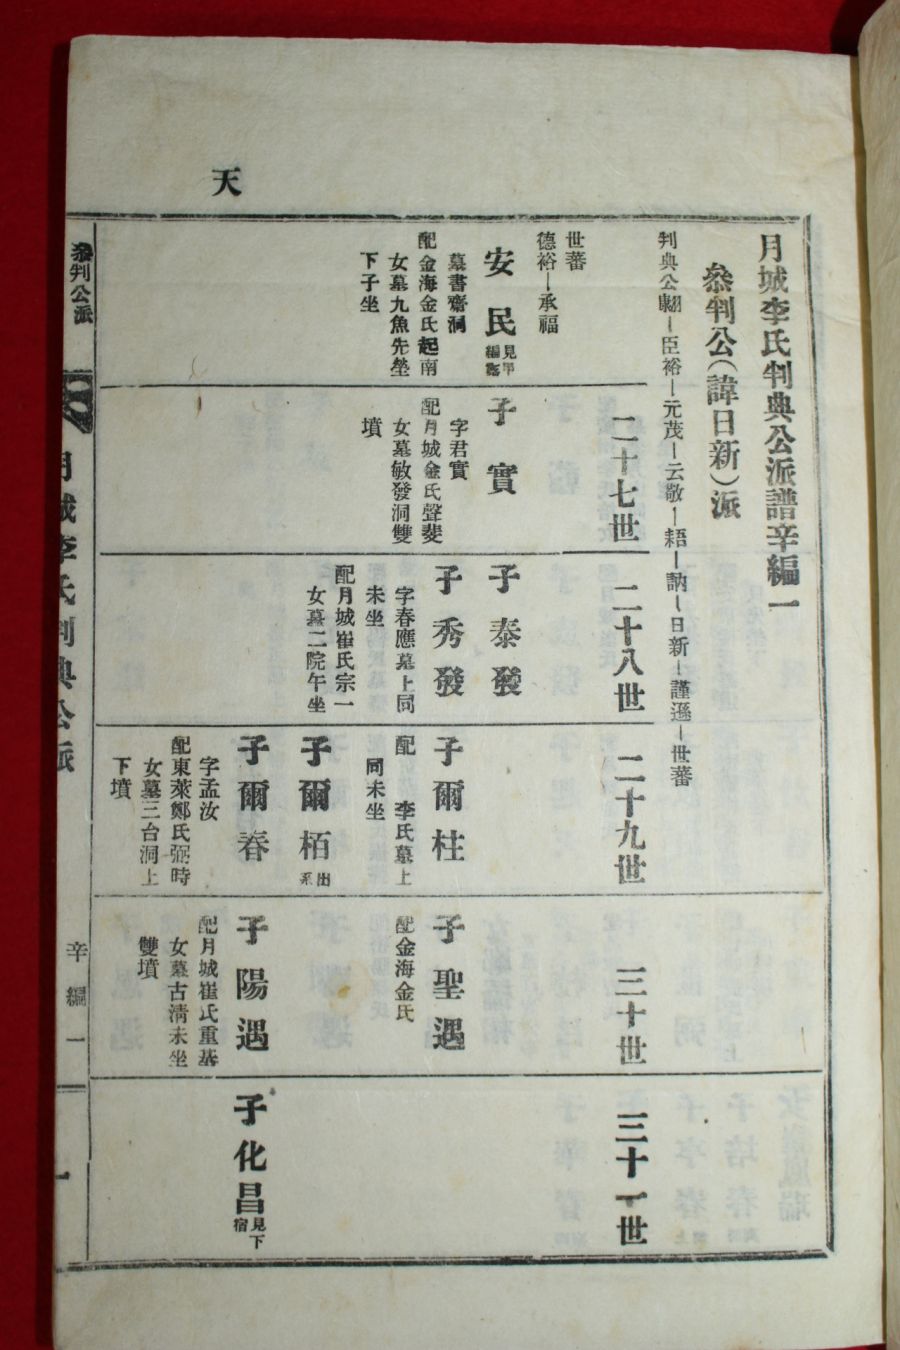 天
月城李氏判典公派譜辛編一
叅判公(諱日新)派
判典公翽―臣裕―元茂―云敬―耛―訥―日新―謹遜―世蕃
世蕃
德裕―承福
安民見甲編
墓書齋洞
配金海金氏起南
女墓九魚先塋
下子坐
二十七世
子實
字君實
配月城金氏聲斐
女墓敏發洞雙
墳
二十八世
子泰發
子秀發
字春應墓上同
未坐
配月城崔氏宗一
女墓二院午坐
二十九世
子爾柱
配 李氏墓上
同未坐
子爾栢出系
子爾春
字孟汝
配東萊鄭氏弼時
女墓三台洞上
下墳
三十世
子聖遇
配金海金氏
子陽遇
配月城崔氏重基
女墓古淸未坐
雙墳
三十一世
子化昌見下宿
叅判公派
月城李氏判典公派
辛編一
一